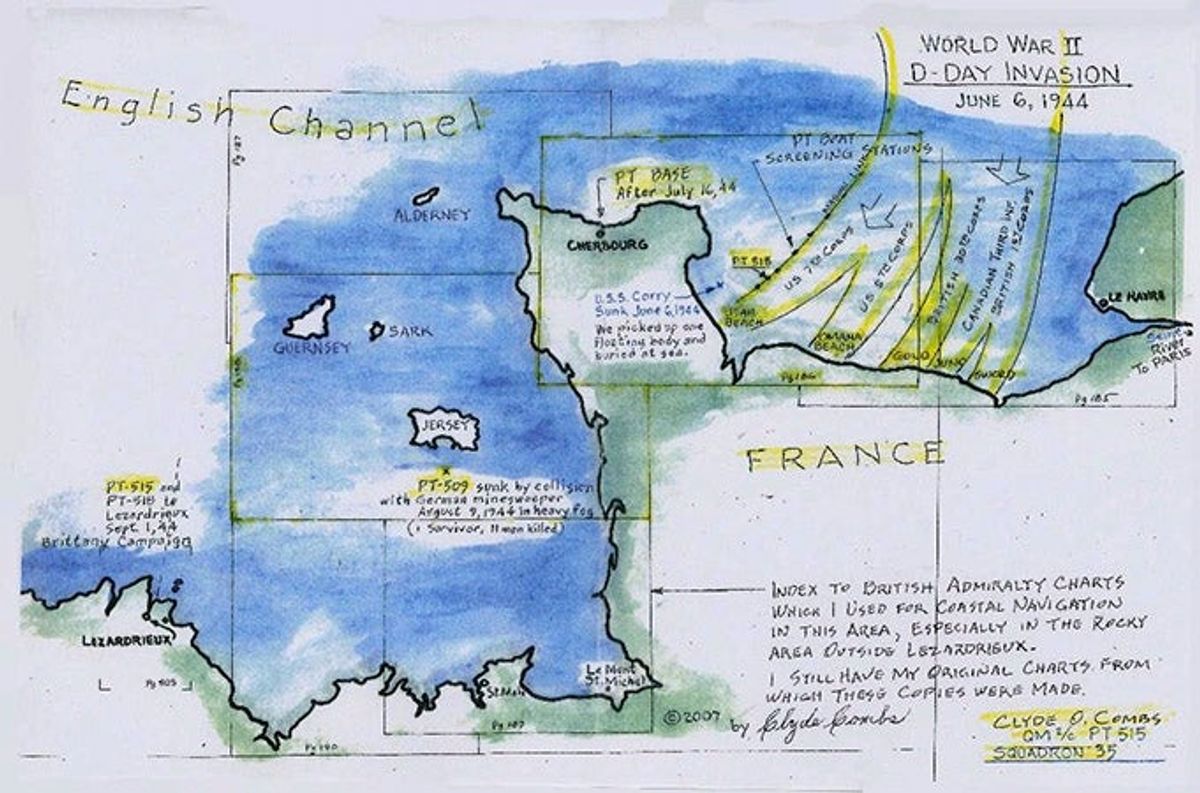 WORLD WAR II
D-DAY INVASION
JUNE 6, 1944
English Channel
Pg 187
PT BOAT
SCREENING STATIONS
PT BASE
After July 16, 44
ALDERNEY
CHERBOURG
PT 515
US 7TH CORPS
US 5TH CORPS
BRITISH 30TH CORPS
CANADIAN THIRD INF.
BRITISH 1ST CORPS
U.S.S. Corry
Sunk June 6, 1944
We picked up one
floating body and
buried at sea.
UTAH
BEACH
OMAHA
BEACH
GOLD
JUNO
SWORD
LE HAVRE
Seine
River
To PARIS
Pg 186
Pg 185
GUERNSEY
SARK
JERSEY
FRANCE
PT-509 sunk by collision
with German minesweeper
August 9, 1944 in heavy fog
(1 Survivor, 11 men killed)
PT-515 and
PT-518 to
Lezardrieux
Sept. 1, 44
Brittany Campaign
LEZARDRIEUX
Le Mont
St. Michel
INDEX TO BRITISH ADMIRALTY CHARTS
WHICH I USED FOR COASTAL NAVIGATION
IN THIS AREA, ESPECIALLY IN THE ROCKY
AREA OUTSIDE LEZARDRIEUX.
I STILL HAVE MY ORIGINAL CHARTS FROM
WHICH THESE COPIES WERE MADE.
©2007 by Clyde Combs
CLYDE O. COMBS
QM 2/c PT 515
SQUADRON 35